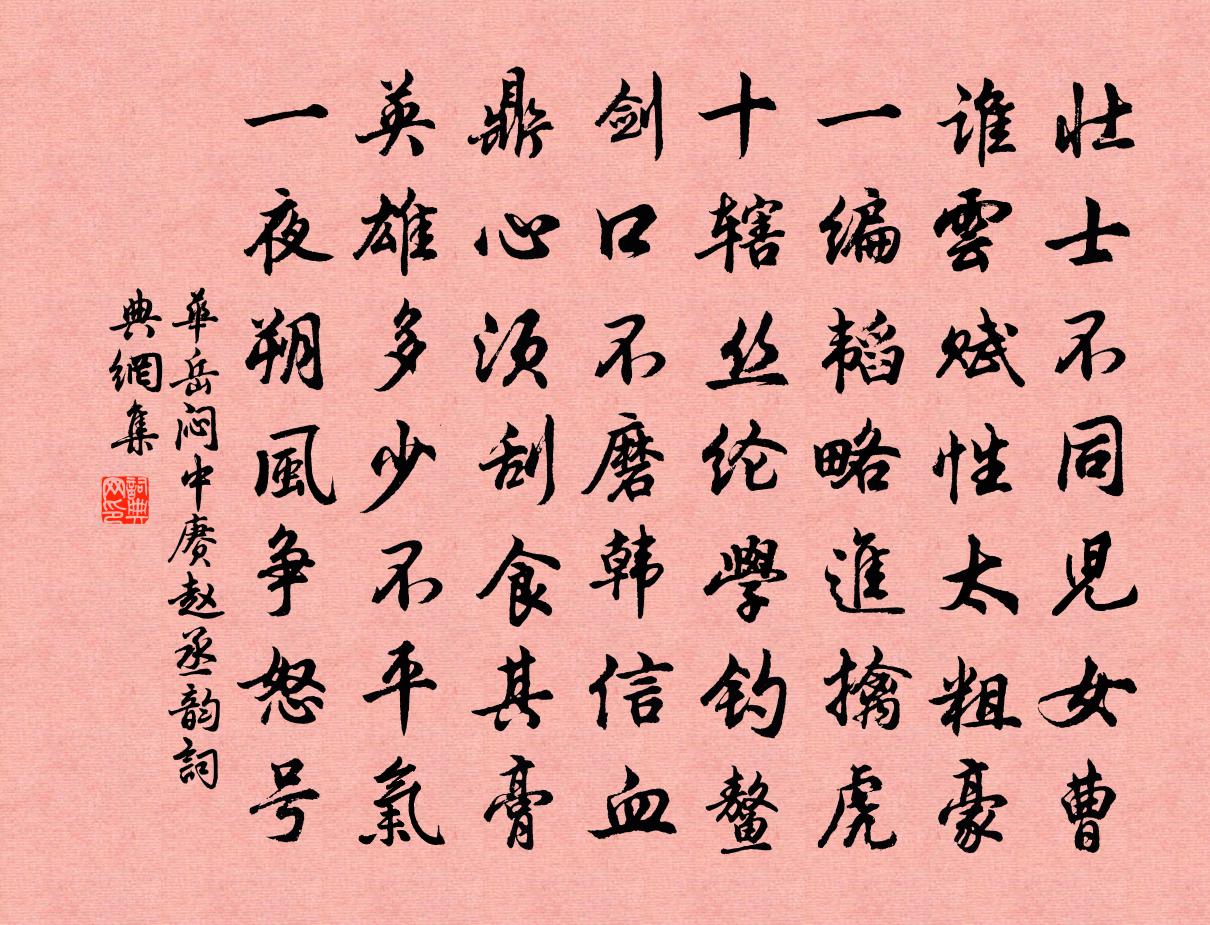 壮士不同児女曹
谁雲赋性太粗豪
一编韬略進擒虎
十辖丝纶學钓鳌
剑口不磨韩信血
鼎心须刮食其膏
英雄多少不平氣
一夜朔風争怒号
華岳闷中赓赵丞韵詞
典網集
詞典网印